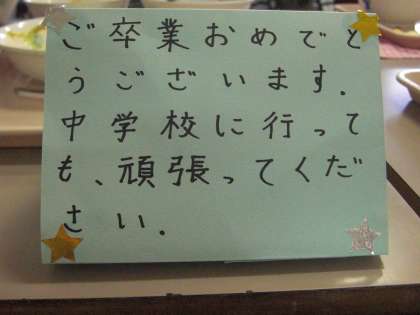 ご卒業おめでと
うございます.
中学校に行って
も、頑張ってくだ
さい.